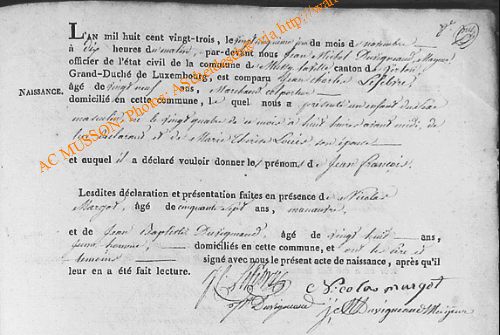 L'AN mil huit cent vingt-trois, le vingt cinquième jour du mois de novembre
à dix heures du matin, par-devant nous Jean Michel Duvigneaud, Mayeur
officier de l'état civil de la commune de canton de Virton,
Grand-Duché de Luxembourg, est comparu Jean Charles Lefebvre,
NAISSANCE. âgé de vingt neuf ans, Marchand colporteur
domicilié en cette commune, le quel nous a présenté un enfant du sexe
masculin né le vingt quatre de ce mois à huit heures avant midi, de
lui déclarant et de Marie Louis son épouse
et auquel il a déclaré vouloir donner les prénoms de Jean François.
Lesdites déclaration et présentation faites en présence de Nicolas
Margot, âgé de cinquante sept ans, manœuvre
et de Jean Baptiste Duvigneaud, âgé de vingt huit ans,
jeune homme, domiciliés en cette commune, et ont les père et
témoins signé avec nous le présent acte de naissance, après qu'il
leur en a été fait lecture.
Nicolas margot
Duvigneaud JM Duvigneaud Mayeur
AC MUSSON: Photos: via http://www